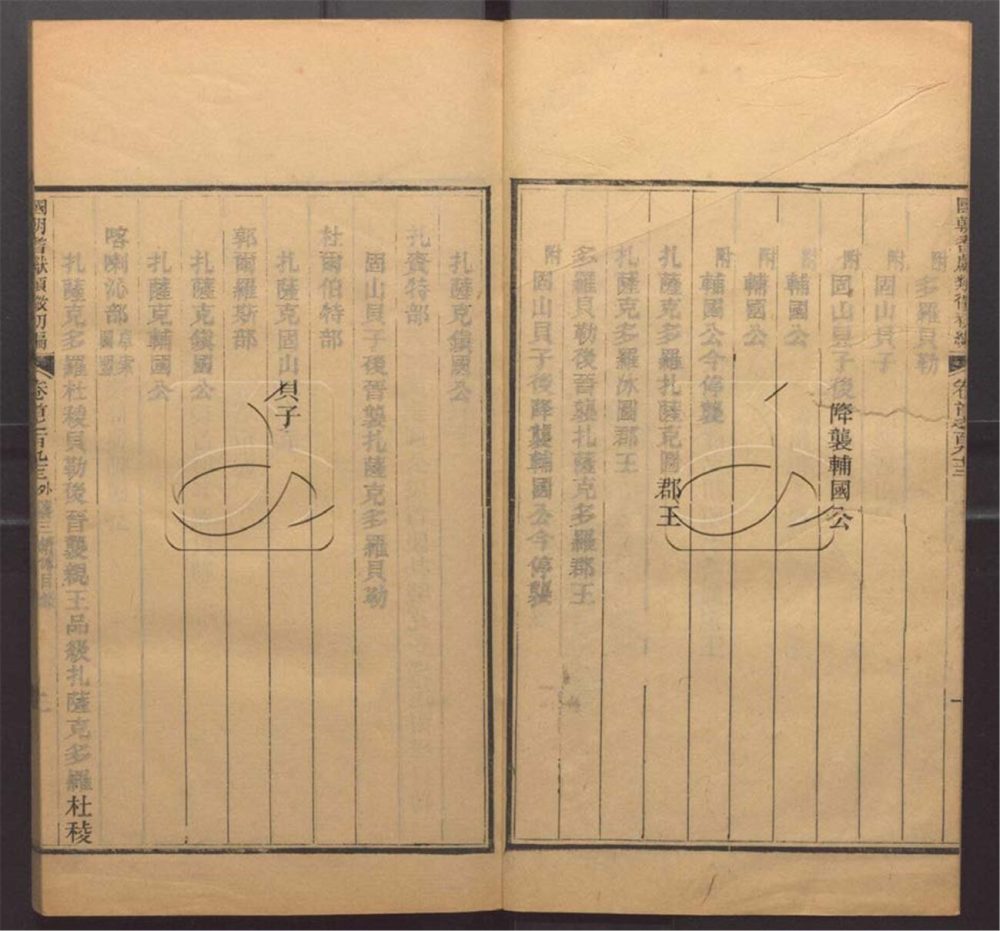 國朝耆獻類徵初編 卷首之百九十三
附 多羅貝勒
附 固山貝子
附 固山貝子後降襲輔國公
附 輔國公
附 輔國公
附 輔國公今停襲
扎薩克多羅扎薩克圖郡王
扎薩克多羅冰圖郡王
多羅貝勒後晉襲扎薩克多羅郡王
附 固山貝子後降襲輔國公今停襲
扎薩克鎮國公
扎賚特部
固山貝子後晉襲扎薩克多羅貝勒
杜爾伯特部
扎薩克固山貝子
郭爾羅斯部
扎薩克鎮國公
扎薩克輔國公
喀喇沁部 卓索圖盟
扎薩克多羅杜稜貝勒後晉襲親王品級扎薩克多羅杜稜
國朝耆獻類徵初編 卷首之百九十三 外藩 目錄 二